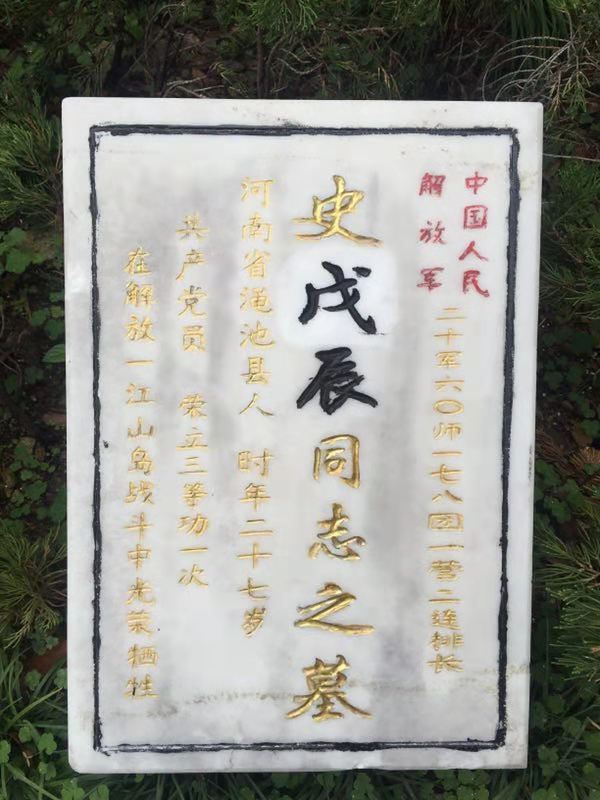 中国人民
解放军
二十军六〇师一七八团一营二连排长
史戊辰同志之墓
河南省渑池县人 时年二十七岁
共产党员 荣立三等功一次
在解放一江山岛战斗中光荣牺牲